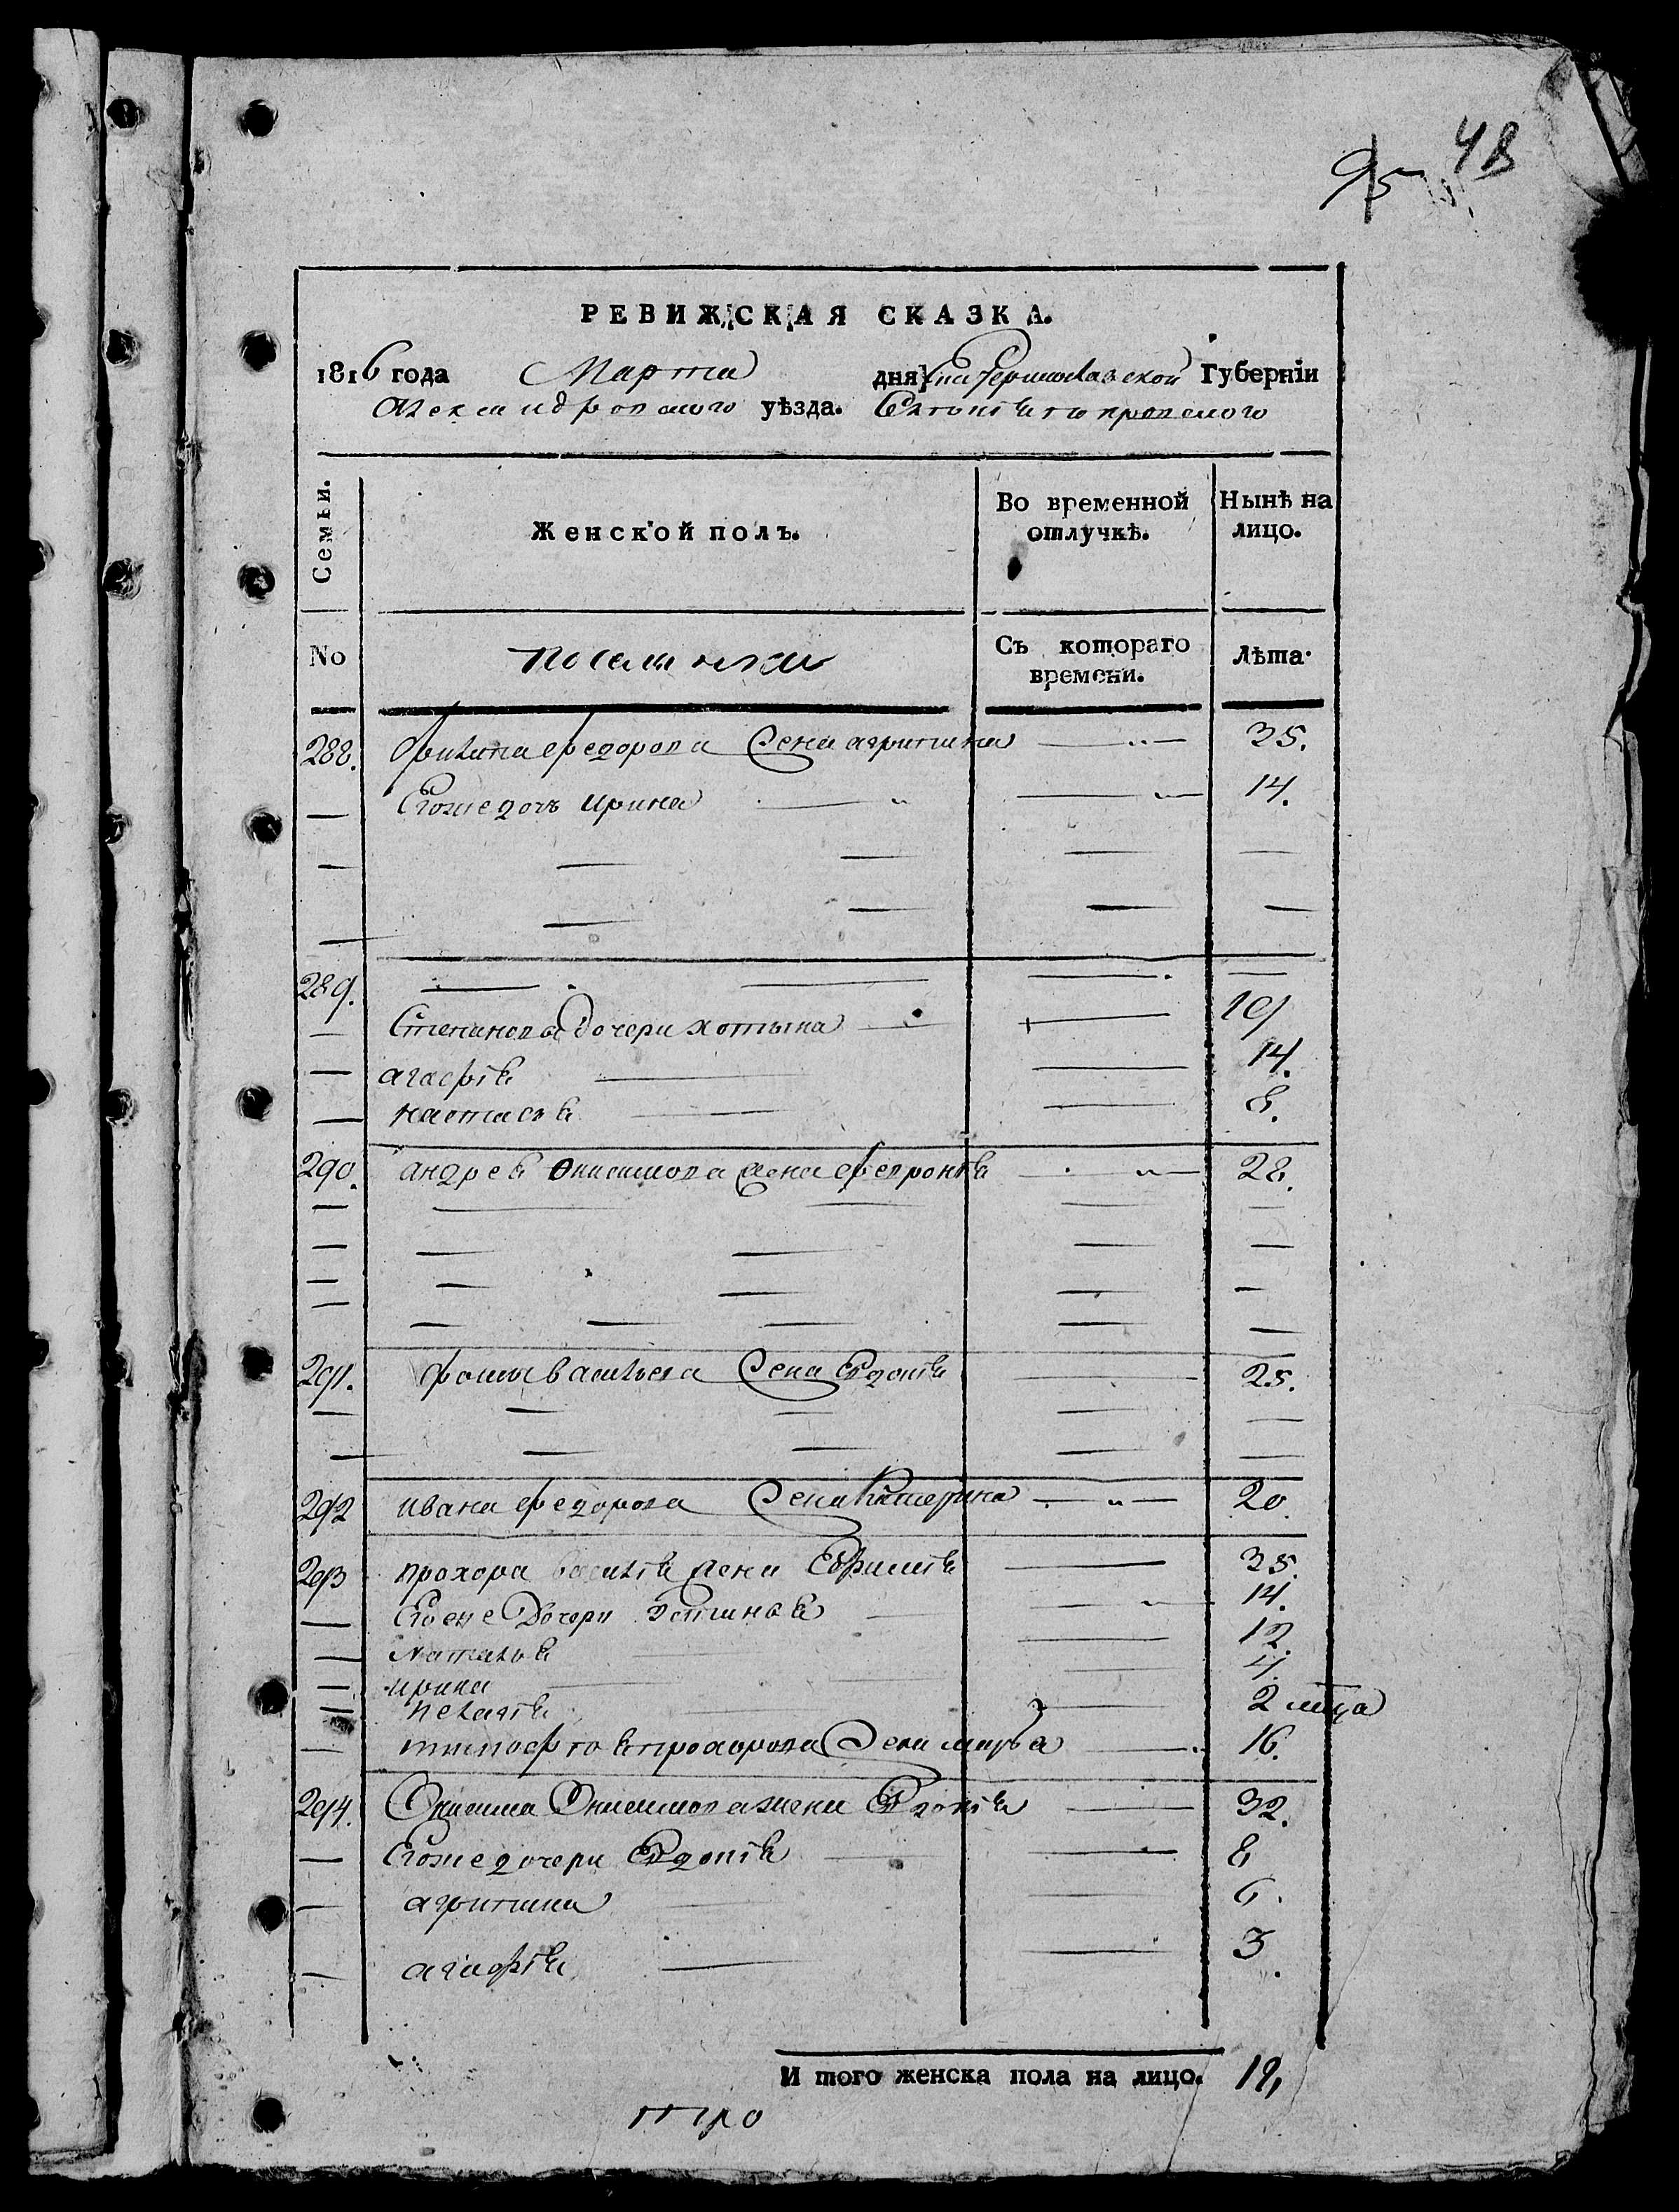 95 48
РЕВИЖСКАЯ СКАЗКА.
1816 года Марта дня Екатеринославской Губернїи
Александровского уѣзда.
Семьи. Женской полъ. Во временной отлучкѣ. Нынѣ на лицо.
No поселянки Съ котораго времени. Лѣта.
288. Филипа федорова жена агрипина 35.
Егоже дочь ирина 14.
289.
Степанова дочери хотына 19
агафія 14.
настасія 8.
290. андрея Онисимова жена февронія 28.
291. фомы васильева жена Евдокія 25.
292 ивана федорова жена Катерина 20.
293 прохора жена Ефимія 35.
Егоже Дочери 14.
Наталья 12.
ирина 4.
пелагія 2 мца
тимофея прохорова жена марфа 16.
294. Онисима Онисимова жена Евдокія 32.
Егоже дочери Евдокія 8
агрипина 6.
агафія 3.
И того женска пола на лицо. 19,
про